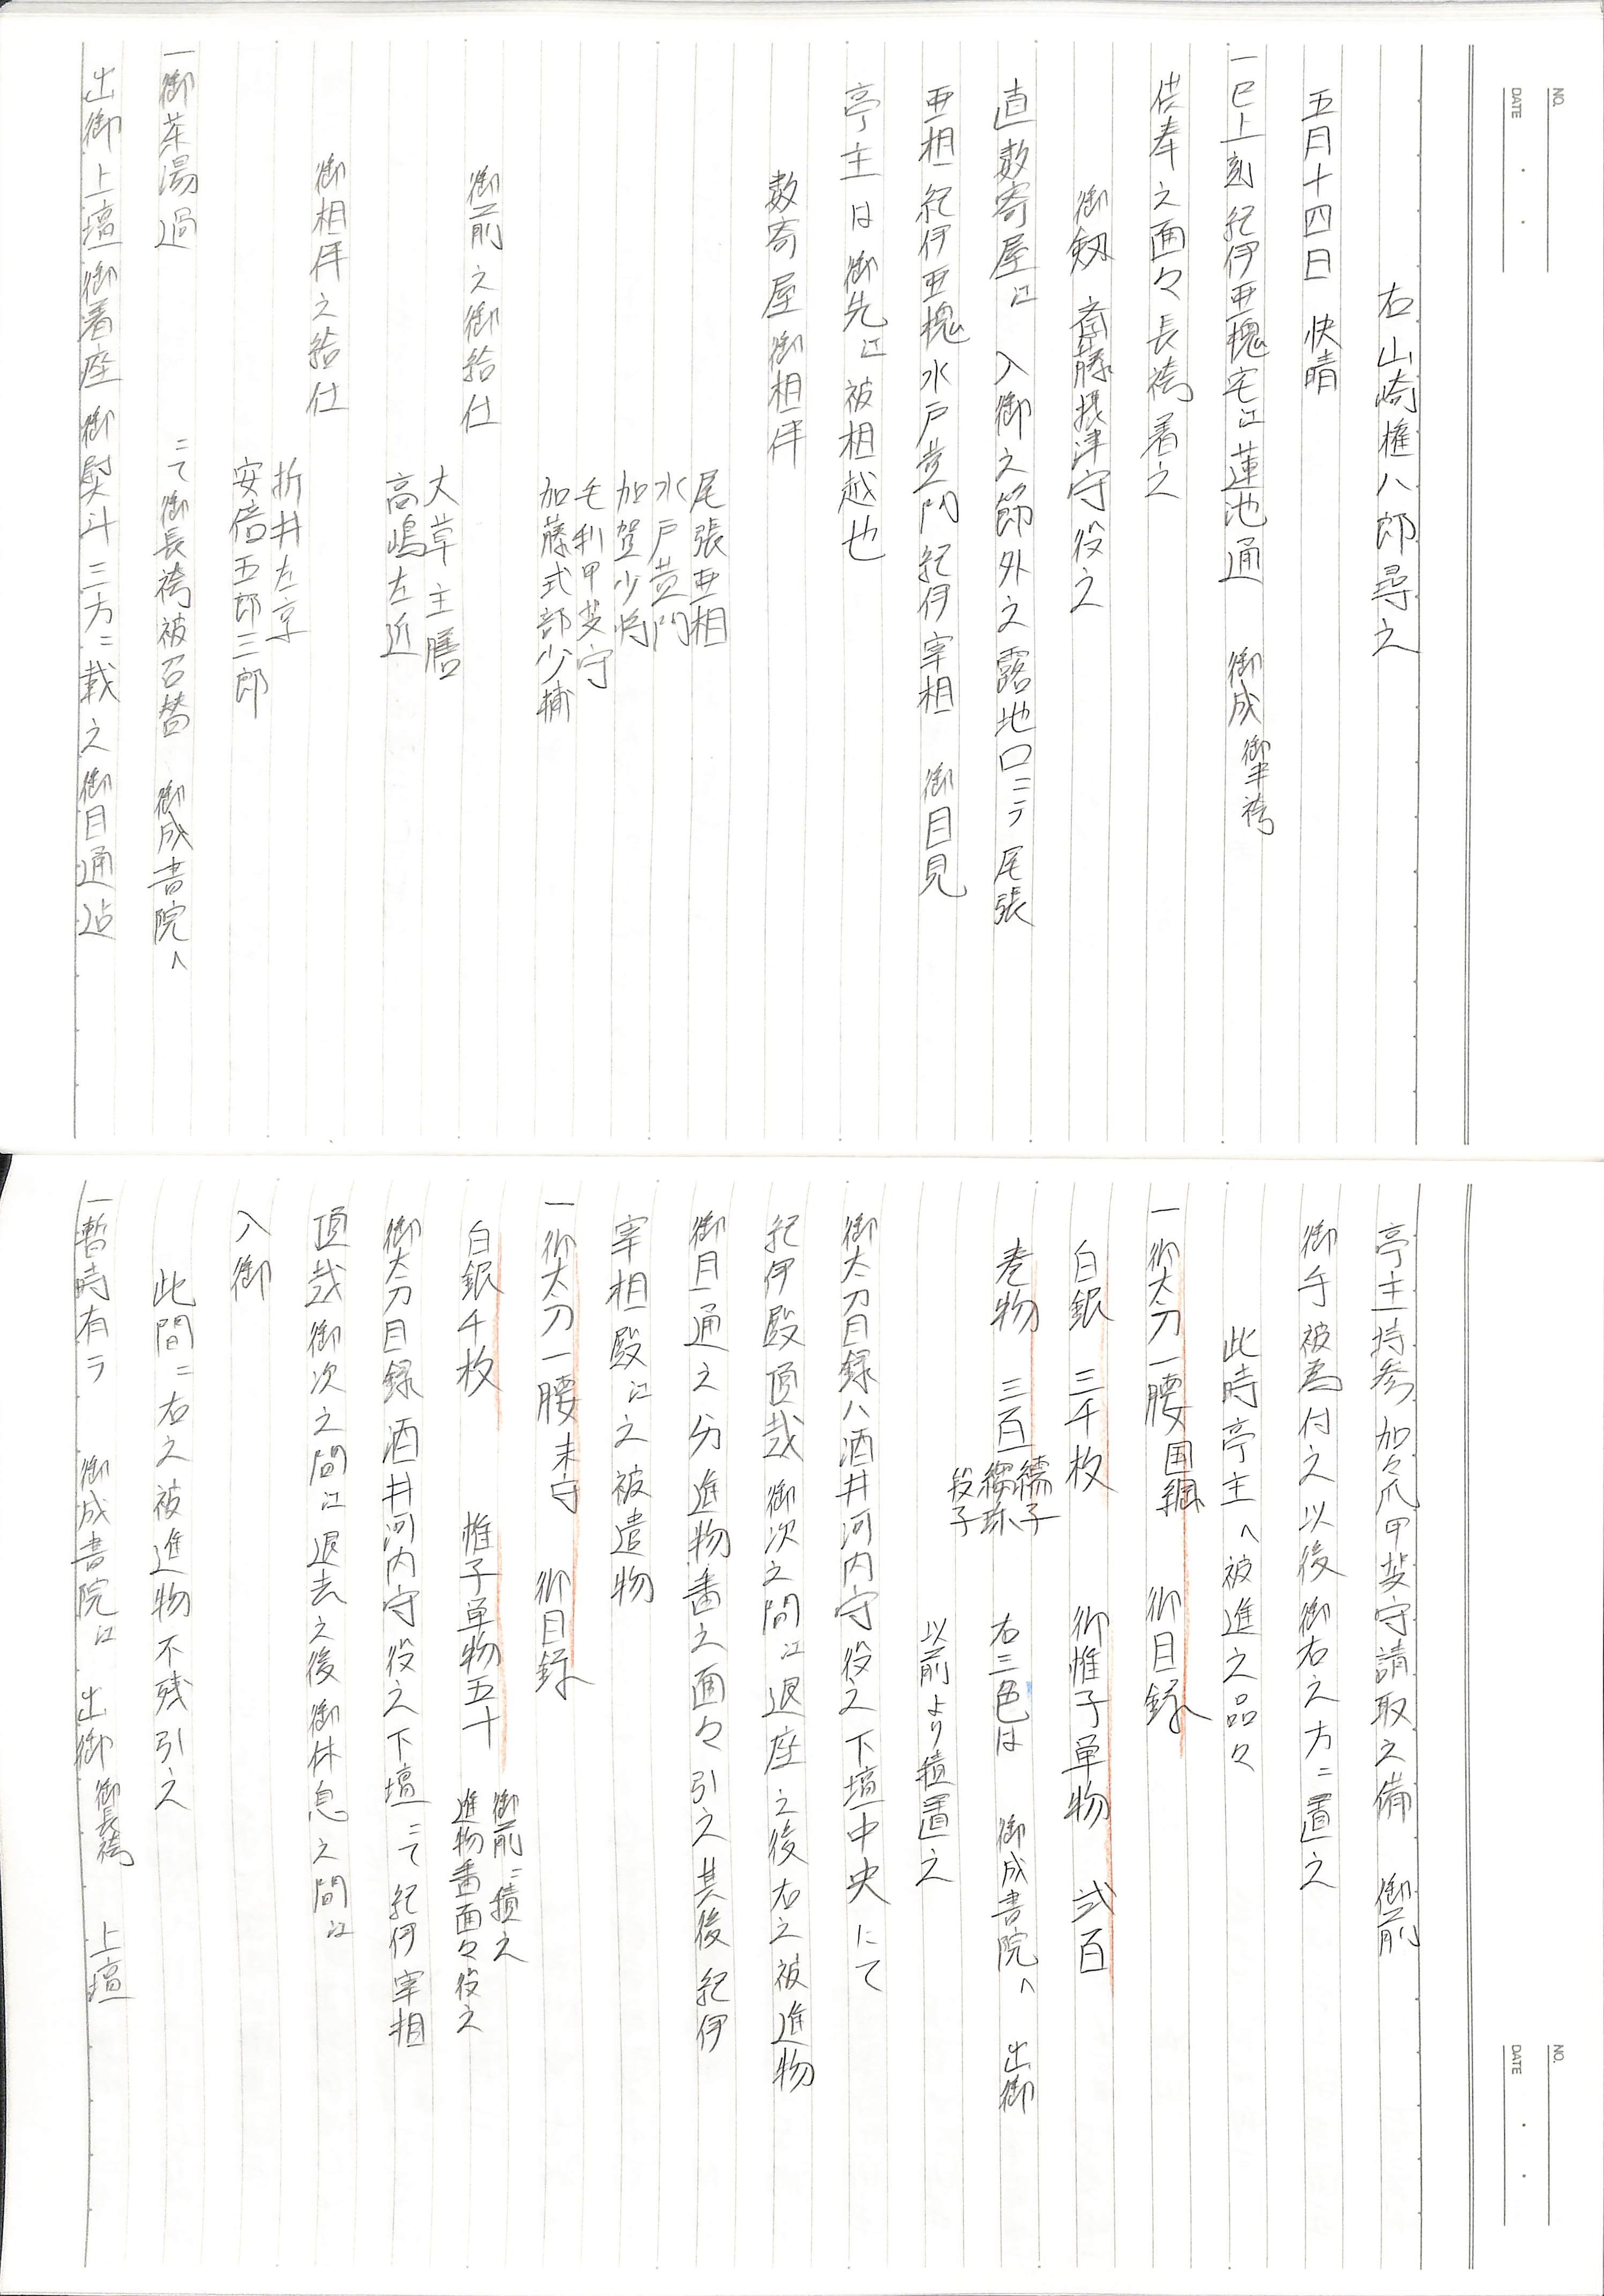 NO.
DATE
右山崎権八郎尋之
五月十四日 快晴
一巳上刻 紀伊亜槐宅江蓮池通 御成 御半袴
供奉之面々長袴着之
御剱 斎藤摂津守役之
直数寄屋江 入御之節外之露地口ニテ尾張
亜相 紀伊亜槐 水戸黄門 紀伊宰相 御目見
亭主は御先江被相越也
数寄屋御相伴
尾張亜相
水戸黄門
加賀少将
毛利甲斐守
加藤式部少輔
御前之御給仕
大草主膳
高嶋左近
御相伴之給仕
折井左京
安倍五郎三郎
一御茶湯過 ニて御長袴被召替 御成書院へ
出御上壇御着座 御熨斗三方ニ載之御目通迠
NO.
DATE
亭主持参 加々爪甲斐守請取之備 御前
御手被為付之以後御右之方ニ置之
此時亭主へ被進之品々
一御太刀一腰 国綱 御目録
白銀 三千枚 御帷子単物 弐百
巻物 三百 繻子 繻珍 段子 右三色は 御成書院へ 出御
以前より積置之
御太刀目録ハ酒井河内守役之下壇中央にて
紀伊殿頂戴 御次之間江退座之後右之被進物
御目通之分進物番之面々引之其後紀伊
宰相殿江之被遣物
一御太刀一腰 末守 御目録
白銀千枚 帷子単物五十 御前ニ積之
進物番面々役之
御太刀目録酒井河内守役之下壇ニて紀伊宰相
頂戴御次之間江退去之後御休息之間江
入御
此間ニ右之被進物不残引之
一暫時有テ 御成書院江 出御 御長袴 上壇